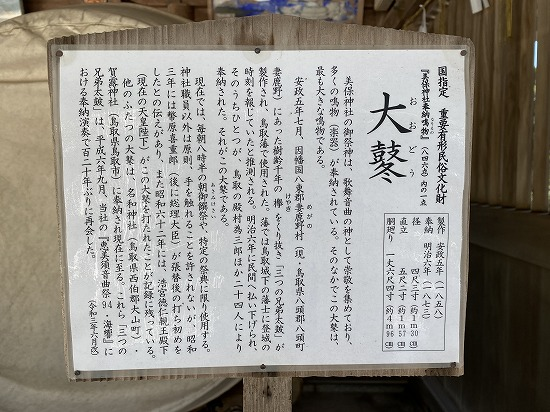 国指定　重要有形民俗文化財
『美保神社奉納鳴物』（八四六点）内の一点
おおどう
大鼕
製作　安政五年（一八五八）
奉納　明治六年（一八七三）
径　四尺三寸　約1m30㎝
直立　五尺二寸　約1m57㎝
胴廻り　一丈六尺四寸　約4m96㎝
美保神社の御祭神は、歌舞音曲の神として崇敬を集めており、
多くの鳴物（楽器）が奉納されている。そのなかでこの大鼕は、
最も大きな鳴物である。
安政五年七月、因幡国八東郡妻鹿野村（現・鳥取県八頭郡八頭町
めがの
妻鹿野）にあった樹齢千年の欅をくり抜き「三つの兄弟太鼓」が
けやき
製作され、鳥取藩で使用された。藩では鳥取城下の藩士に登城の
時刻を報じていたと推測される。明治六年に民間へ払い下げられ、
そのうちひとつが、鳥取の殿村為三郎ほか二十四人により
奉納された。それがこの大鼕である。
現在では、毎朝八時半の朝御饌祭や、特定の祭典に限り使用する。
あさみけさい
神社職員以外は原則、手を触れることを許されないが、昭和
三年には簗原喜重郎（後に総理大臣）が張替後の打ち初めを
したとの伝えがあり、また昭和六十二年には、浩宮徳仁親王殿下
（現在の天皇陛下）がこの大鼕を打たれたことが記録に残っている。
他のふたつの大鼕は、名和神社（鳥取県西伯郡大山町）・
賀露神社（鳥取県鳥取市）に奉納され現在に至る。これら「三つの
兄弟太鼓」は、平成六年九月、当社の「恵美須音曲祭'94・海曜」に
おける奉納演奏で百二十年ぶりに再会した。
（令和三年六月記）